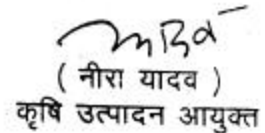 ( नीरा यादव )
कृषि उत्पादन आयुक्त